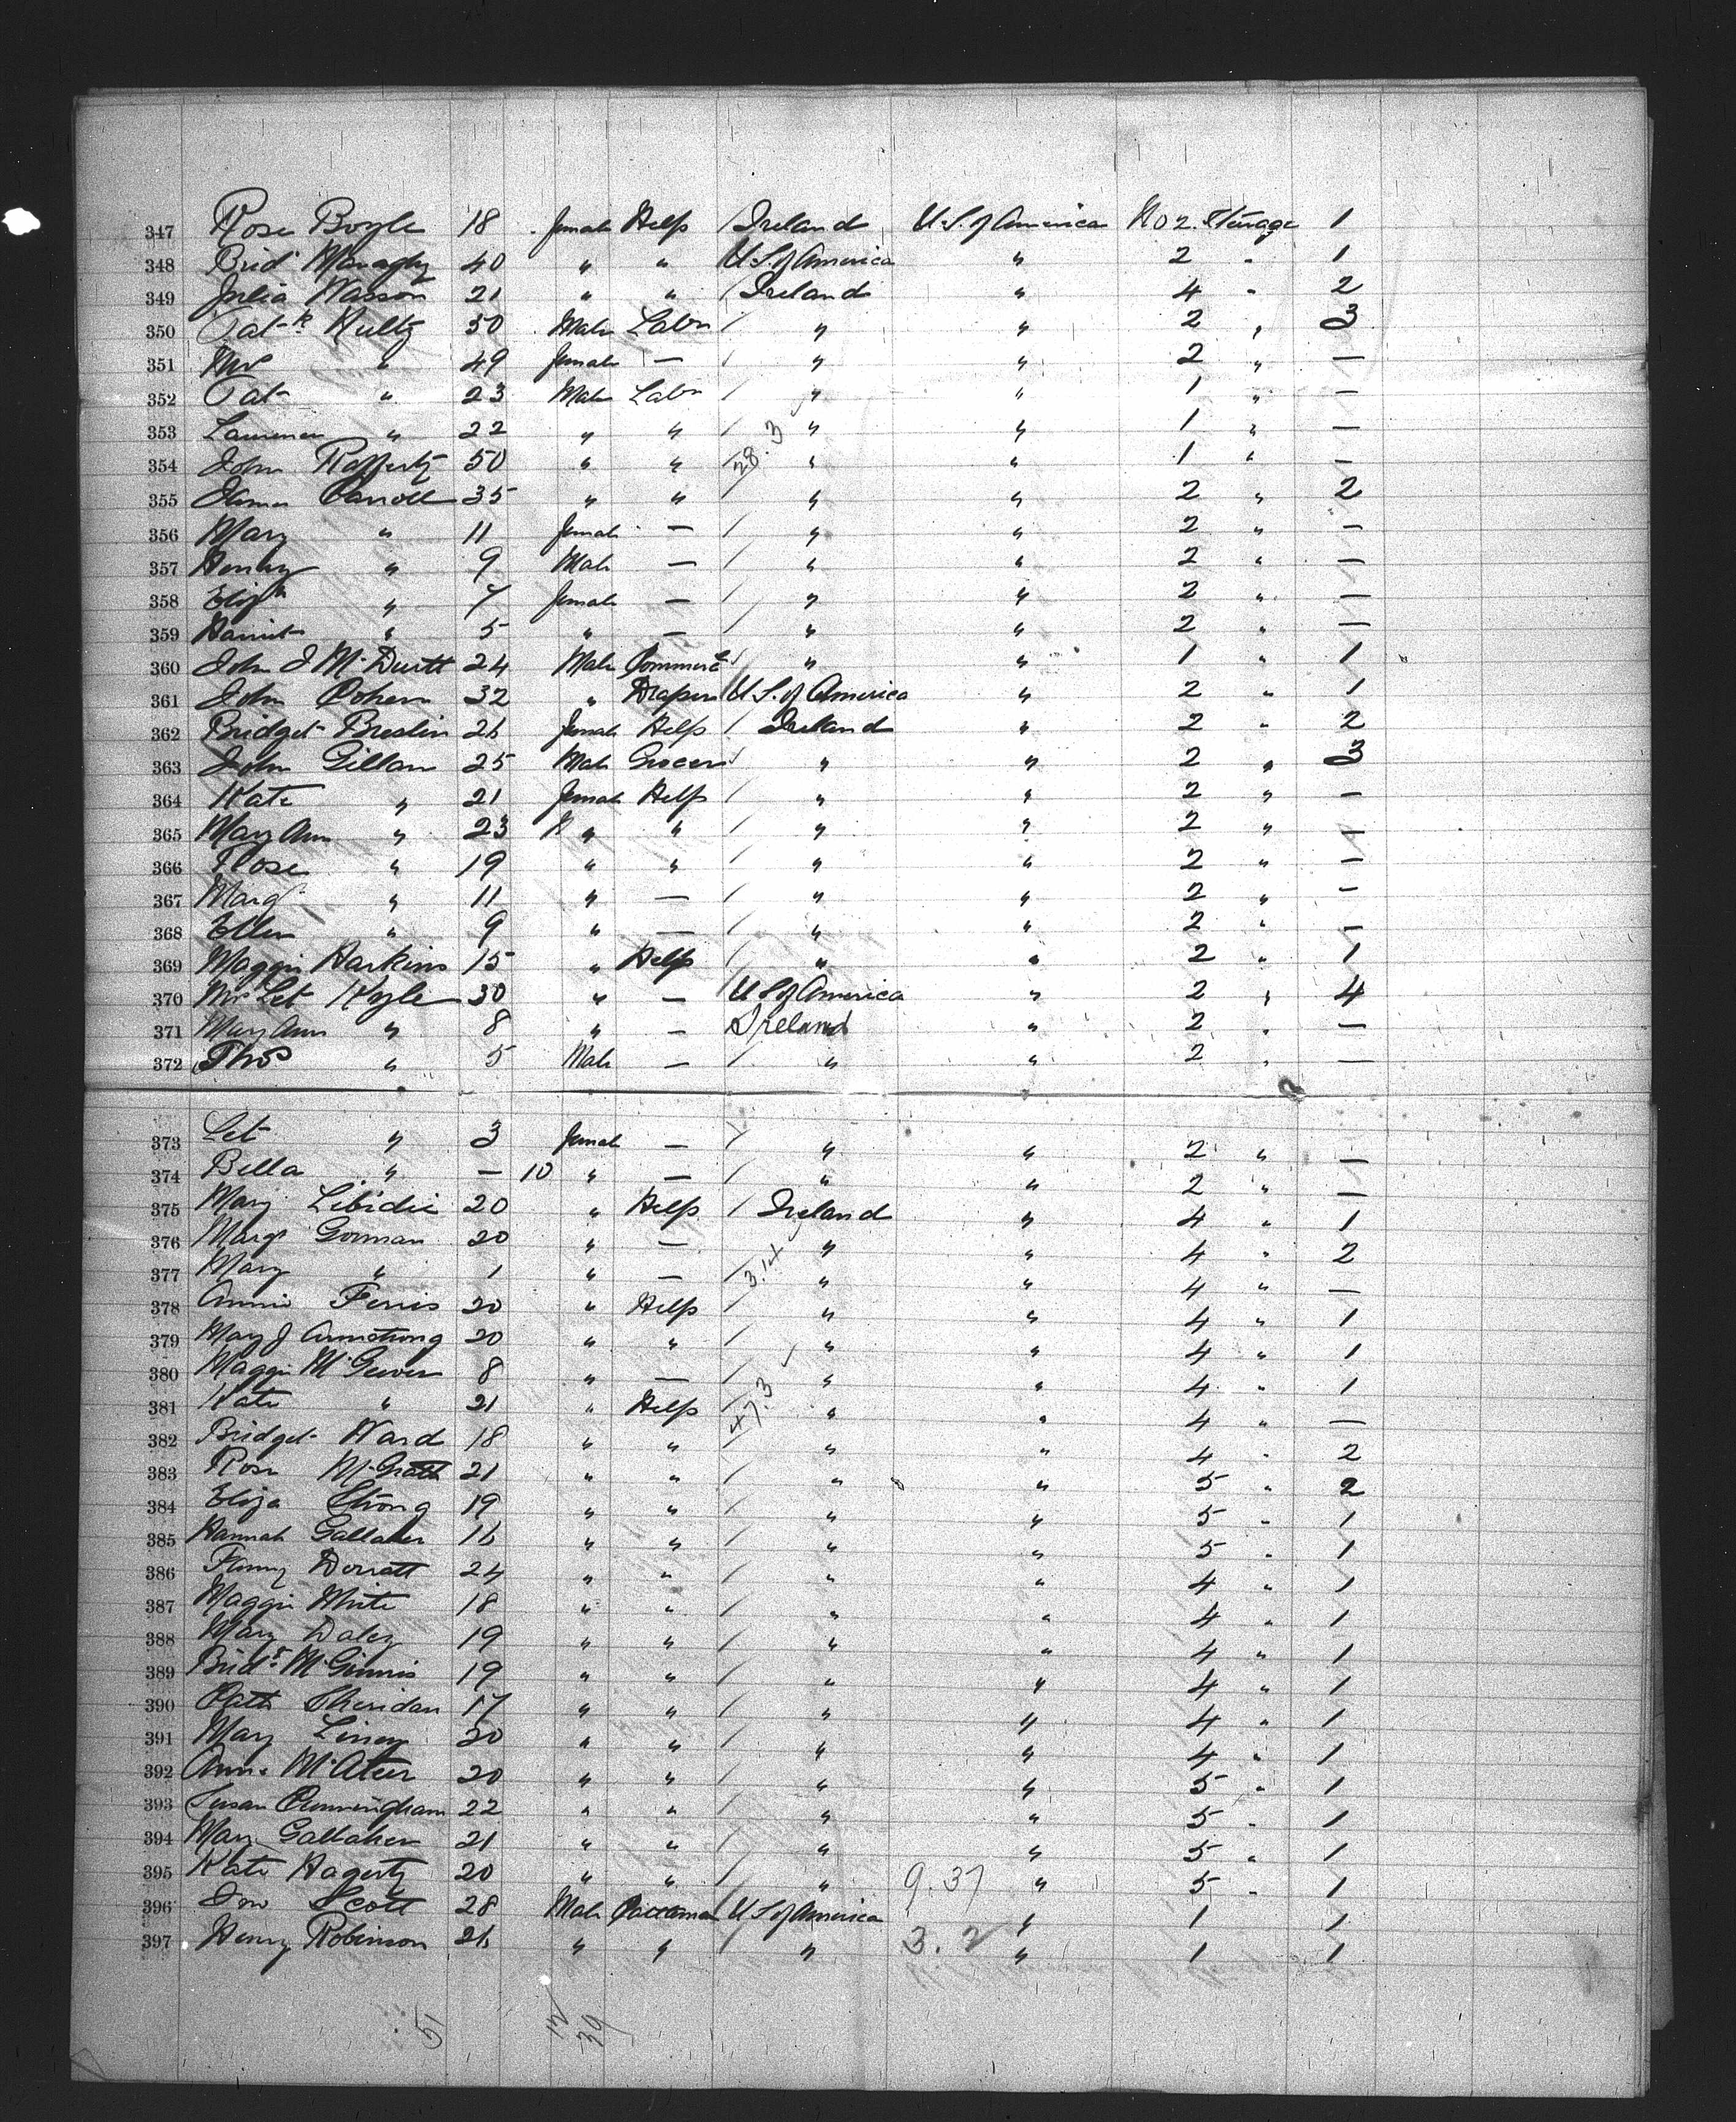 347 Rose Boyle 18 female Help Ireland U.S. of America No 2. Steerage 1
348 Brid 40 " " U.S. of America " 2 " 1
349 Julia Wasson 21 " " Ireland " 4 " 2
350 Patk 50 Male Labr " " 2 " 3
351 Mrs " 49 female — " " 2 " —
352 Pat " 23 Male Labr " " 1 " —
353 Lawrence " 22 " " " " 1 " —
354 John Rafferty 50 " " 28.3 " " 1 " —
355 James Carroll 35 " " " " 2 " 2
356 Mary " 11 female — " " 2 " —
357 Henry " 9 Male — " " 2 " —
358 Elizh " 7 female — " " 2 " —
359 Harriet " 5 " — " " 2 " —
360 John J 24 Male " " 1 " 1
361 John 32 " Draper U.S. of America " 2 " 1
362 Bridget Breslin 26 female Help Ireland " 2 " 2
363 John Gillan 25 Male Grocer " " 2 " 3
364 Kate " 21 female Help " " 2 " —
365 Mary Ann " 23 " " " " 2 " —
366 Rose " 19 " " " " 2 " —
367 Margt " 11 " — " " 2 " —
368 Ellen " 9 " — " " 2 " —
369 Maggie Harkins 15 " Help " " 2 " 1
370 Mrs Let Kyle 30 " — U S of America " 2 " 4
371 Mary Ann " 8 " — Ireland " 2 " —
372 Thos " 5 Male — " " 2 " —
373 Let " 3 female — " " 2 " —
374 Bella " — 10 " — " " 2 " —
375 Mary 20 " Help Ireland " 4 " 1
376 Margt Gorman 20 " — " " 4 " 2
377 Mary " 1 " — 3.14 " " 4 " —
378 Annie Ferris 20 " Help " " 4 " 1
379 Mary J Armstrong 20 " " " " 4 " 1
380 Maggie 8 " — " " 4 " 1
381 Kate " 21 " Help 47.3 " " 4 " —
382 Bridget Ward 18 " " " " 4 " 2
383 Rose McGrath 21 " " " " 5 " 2
384 Eliza Strong 19 " " " " 5 " 1
385 Hannah Gallaher 16 " " " " 5 " 1
386 Fanny 24 " " " " 4 " 1
387 Maggie White 18 " " " " 4 " 1
388 Mary Daley 19 " " " " 4 " 1
389 Bridt McGinnis 19 " " " " 4 " 1
390 Cath Sheridan 17 " " " " 4 " 1
391 Mary 20 " " " " 4 " 1
392 Anne McAteer 20 " " " " 5 " 1
393 Susan Cunningham 22 " " " " 5 " 1
394 Mary Gallaher 21 " " " " 5 " 1
395 Kate Hagerty 20 " " " 9.37 " 5 " 1
396 Jno Scott 28 Male U S of America " 1 1
397 Henry Robinson 26 " " " 3.2 " 1 1
51 12 39